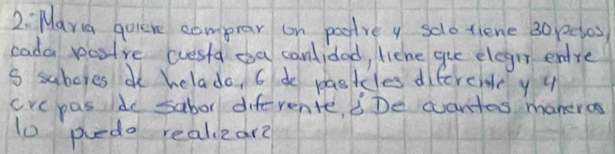 2. Maria quiere comprar un postre y solo tiene 30 pesos,
cada postre cuesta esa cantidad, tiene que elegir entre
8 sabores de helado, 6 de pasteles diferente y 4
crepas de sabor diferente, ¿De cuantas maneras
lo puedo realizar?